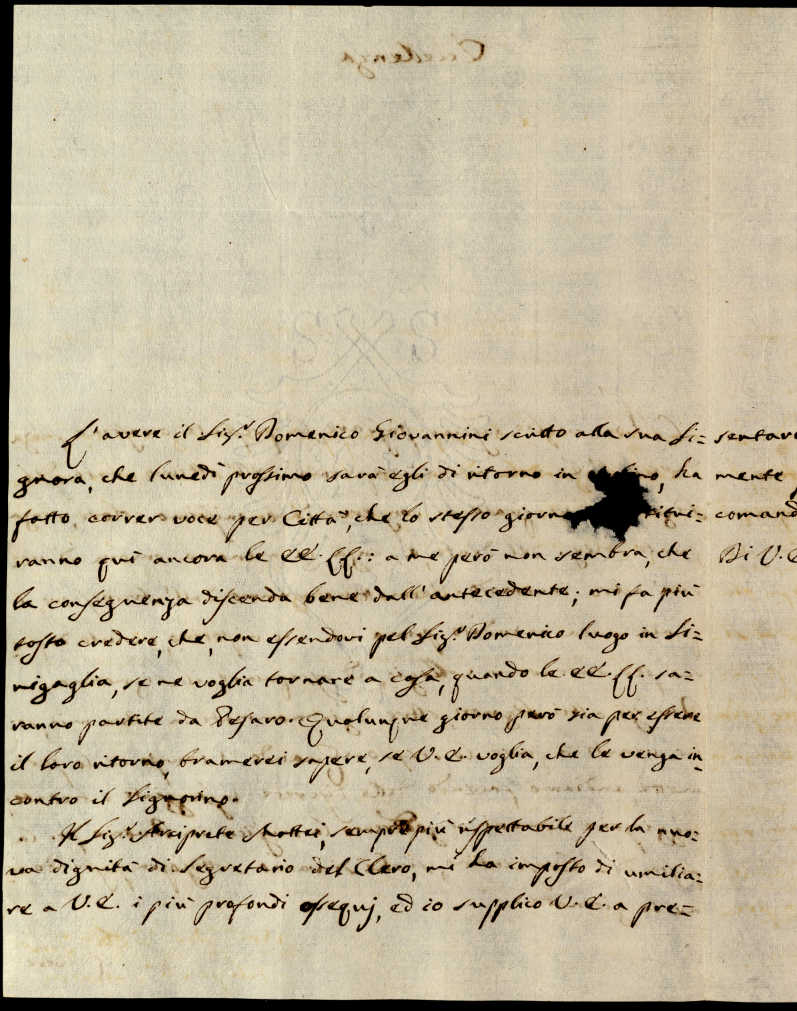 L'avere il Sig.r Domenico Giovannini scritto alla sua Si=
gnora, che lunedì prossimo sarà egli di ritorno in ha
fatto correr voce per Città, che lo stesso
ranno quì ancora le EE. LL.: a me però non sembra, che
la conseguenza discenda bene dall'antecedente; mi fa più
tosto credere, che, non essendovi pel Sig.r Domenico luogo in Si=
nigaglia, se ne voglia tornare a casa, quando le EE. LL. sa=
ranno partite da Pesaro. Qualunque giorno però sia per essere
il loro ritorno, bramerei sapere, se V. E. voglia, che le venga in=
contro il Signorino.
Il Sig.r Arciprete Mattei, sempre più rispettabile per la nuo=
va dignità di Segretario del Clero, mi ha imposto di umilia=
re a V. E. i più profondi ossequj, ed io supplico V. E. a pre=
mente
Di V. E.